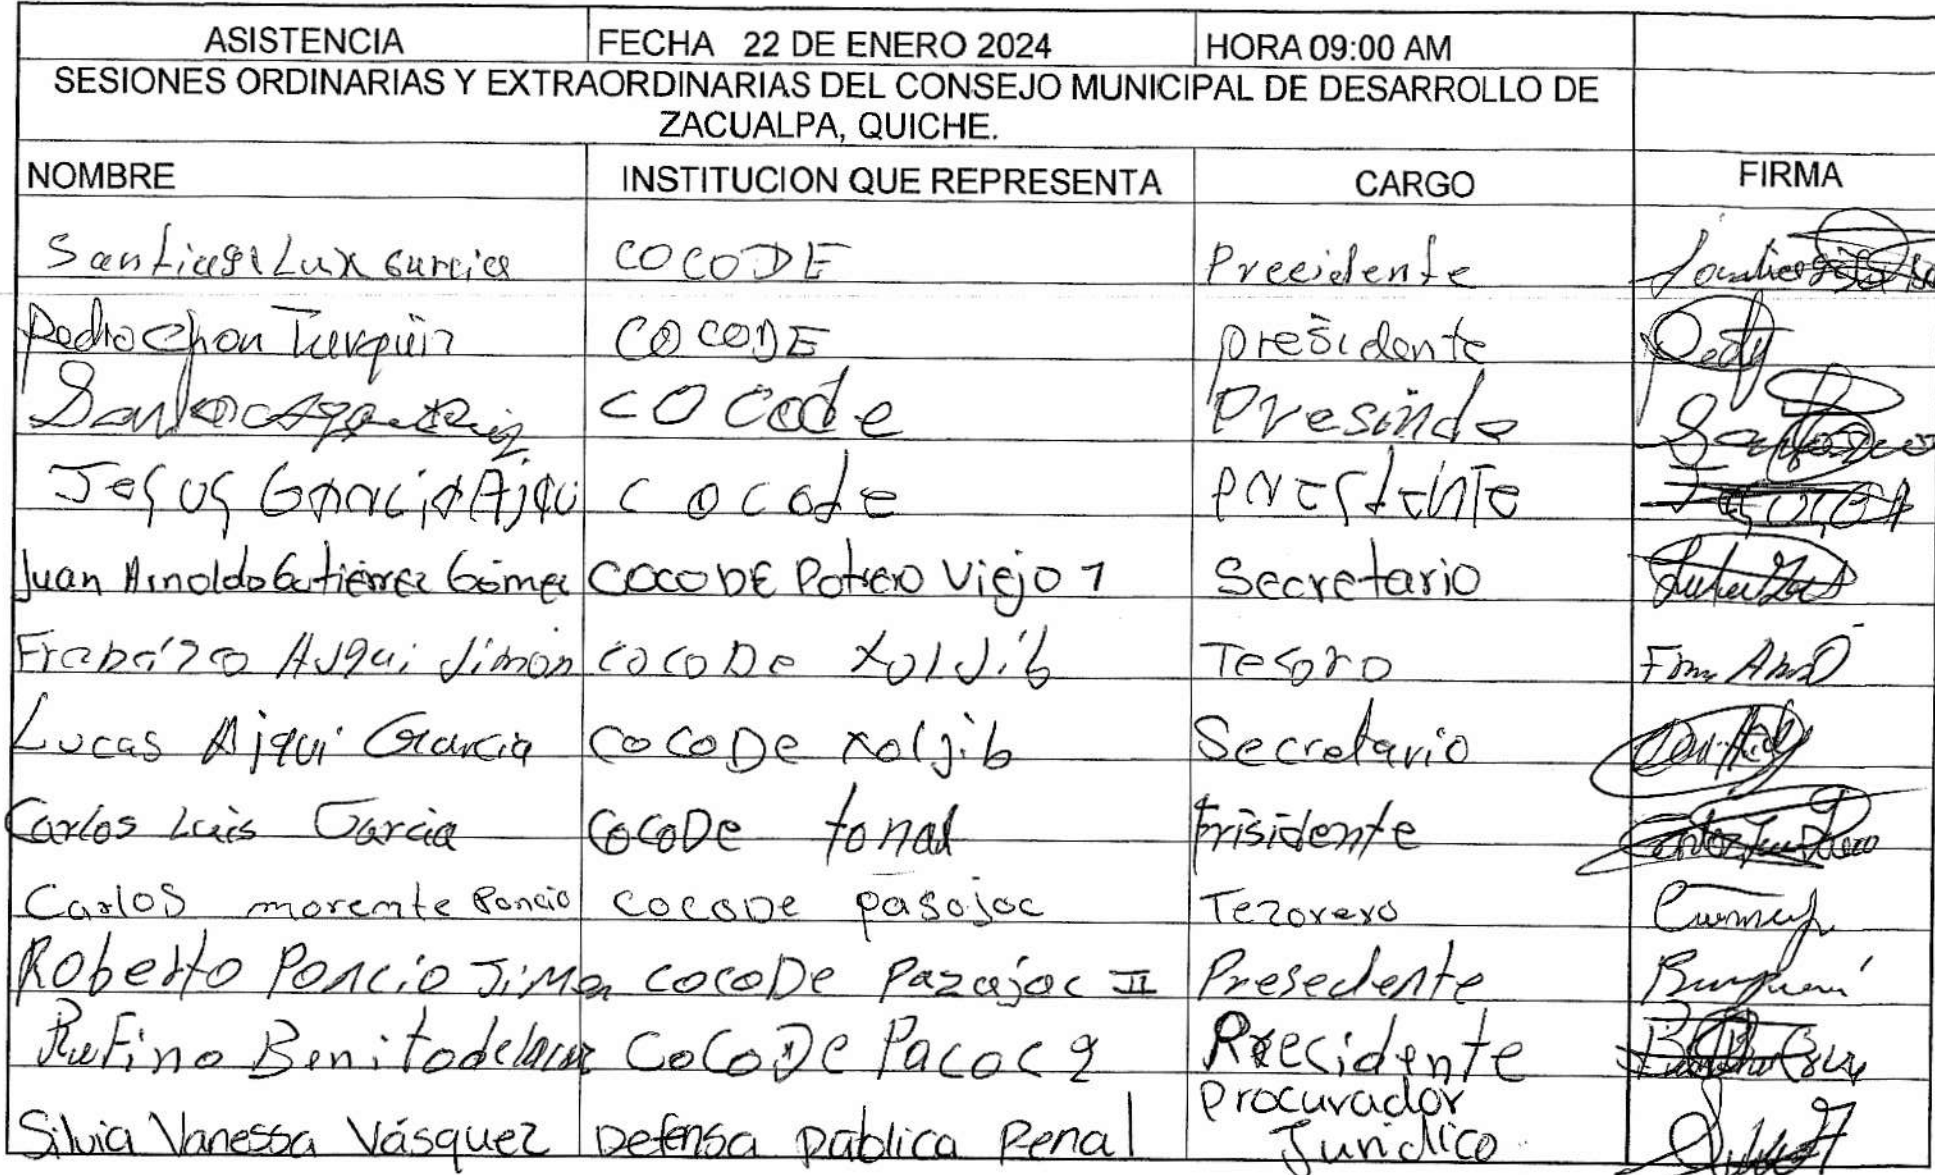 ASISTENCIA FECHA 22 DE ENERO 2024 HORA 09:00 AM
SESIONES ORDINARIAS Y EXTRAORDINARIAS DEL CONSEJO MUNICIPAL DE DESARROLLO DE
ZACUALPA, QUICHE.
NOMBRE INSTITUCION QUE REPRESENTA CARGO FIRMA
Santiago Lux Garcia COCODE Preeidente
Pedro Chon Turquiz COCODE presidente
COCode Presinde
Jesus Garcia Ajqui cocode
Juan Arnoldo Gutiérrez Gómez COCODE Potrero Viejo 1 Secretario
Ajqui Simón COCODe XolJib Tesoro
Lucas Ajqui Garcia COCODe Xoljib Secretario
Carlos Luis Garcia COCODe tonal Prisidente
Carlos morente Poncio COCODE pasojoc Tezorero
Roberto Poncio Jimon COCODe Pazajoc II Presedente
Rufino Benito de la cruz COCODe Pacoc 2 Precidente
Silvia Vanessa Vásquez Defensa pública Penal Procurador
Juridico